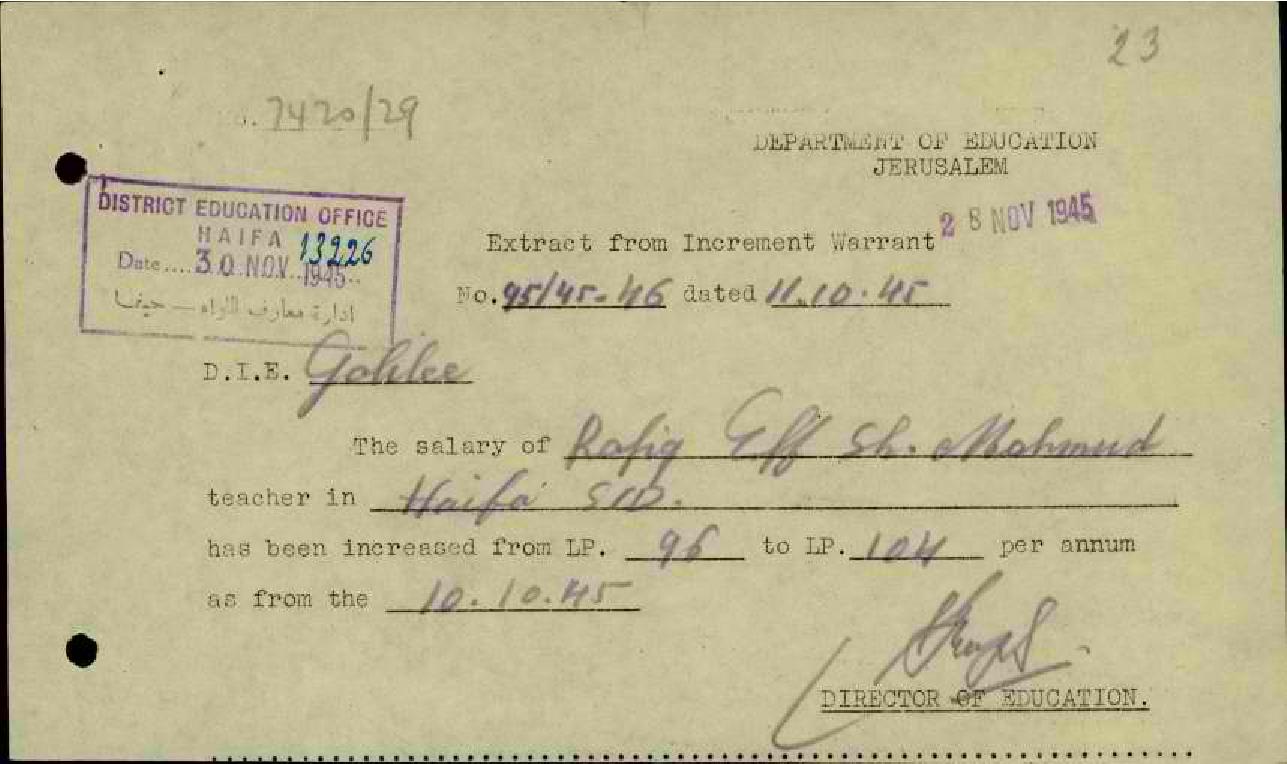 23
7420/29
DEPARTMENT OF EDUCATION
JERUSALEM
28 NOV 1945
DISTRICT EDUCATION OFFICE
HAIFA 13226
Date.... 30 NOV. 1945..
ادارة معارف اللواء — حيفا
Extract from Increment Warrant
No. 95/45-46 dated 11.10.45
D.I.E. Galilee
The salary of Rafiq Eff Sh. Mahmud
teacher in Haifa
has been increased from LP. 96 to LP. 104 per annum
as from the 10.10.45
DIRECTOR OF EDUCATION.